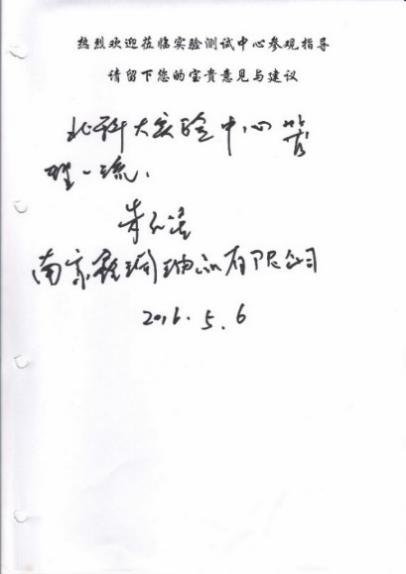 热烈欢迎莅临实验测试中心参观指导
请留下您的宝贵意见与建议
北科大实验中心管
理一流.
南京 有限公司
2016.5.6